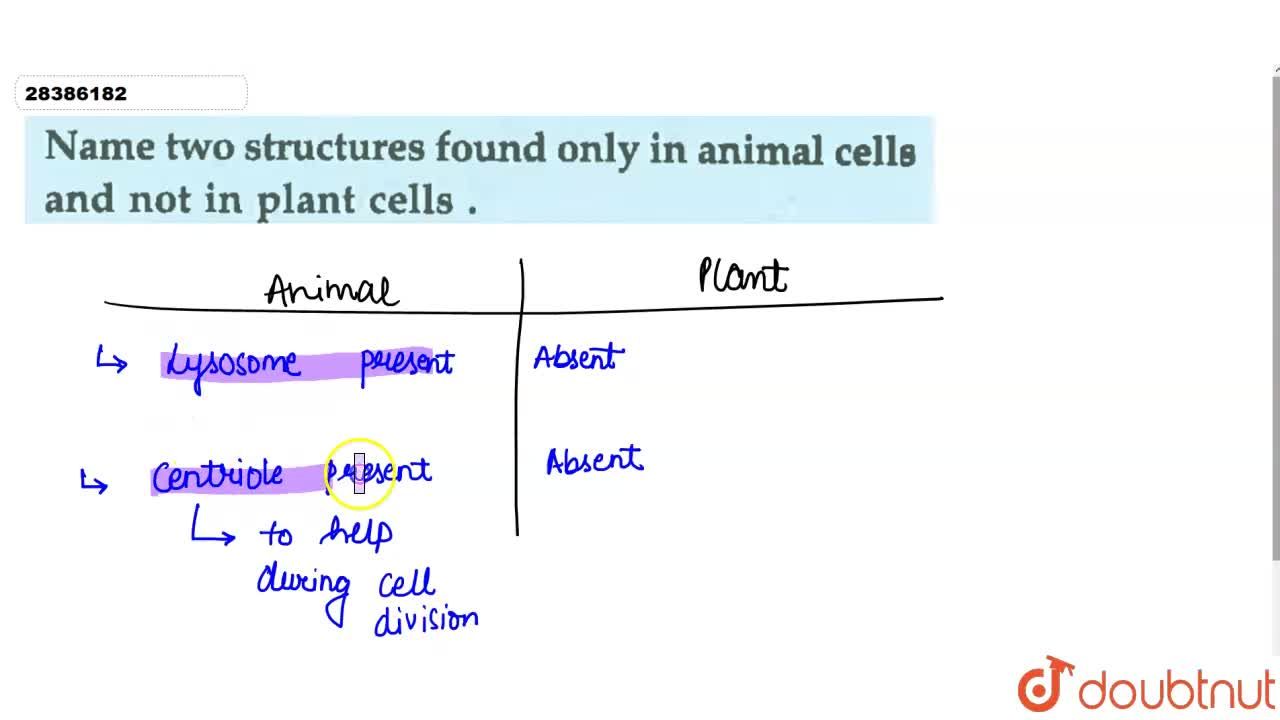 28386182
Name two structures found only in animal cells
and not in plant cells .
Animal Plant
Lysosome present Absent
Centriole present Absent
to help
during cell
division
doubtnut